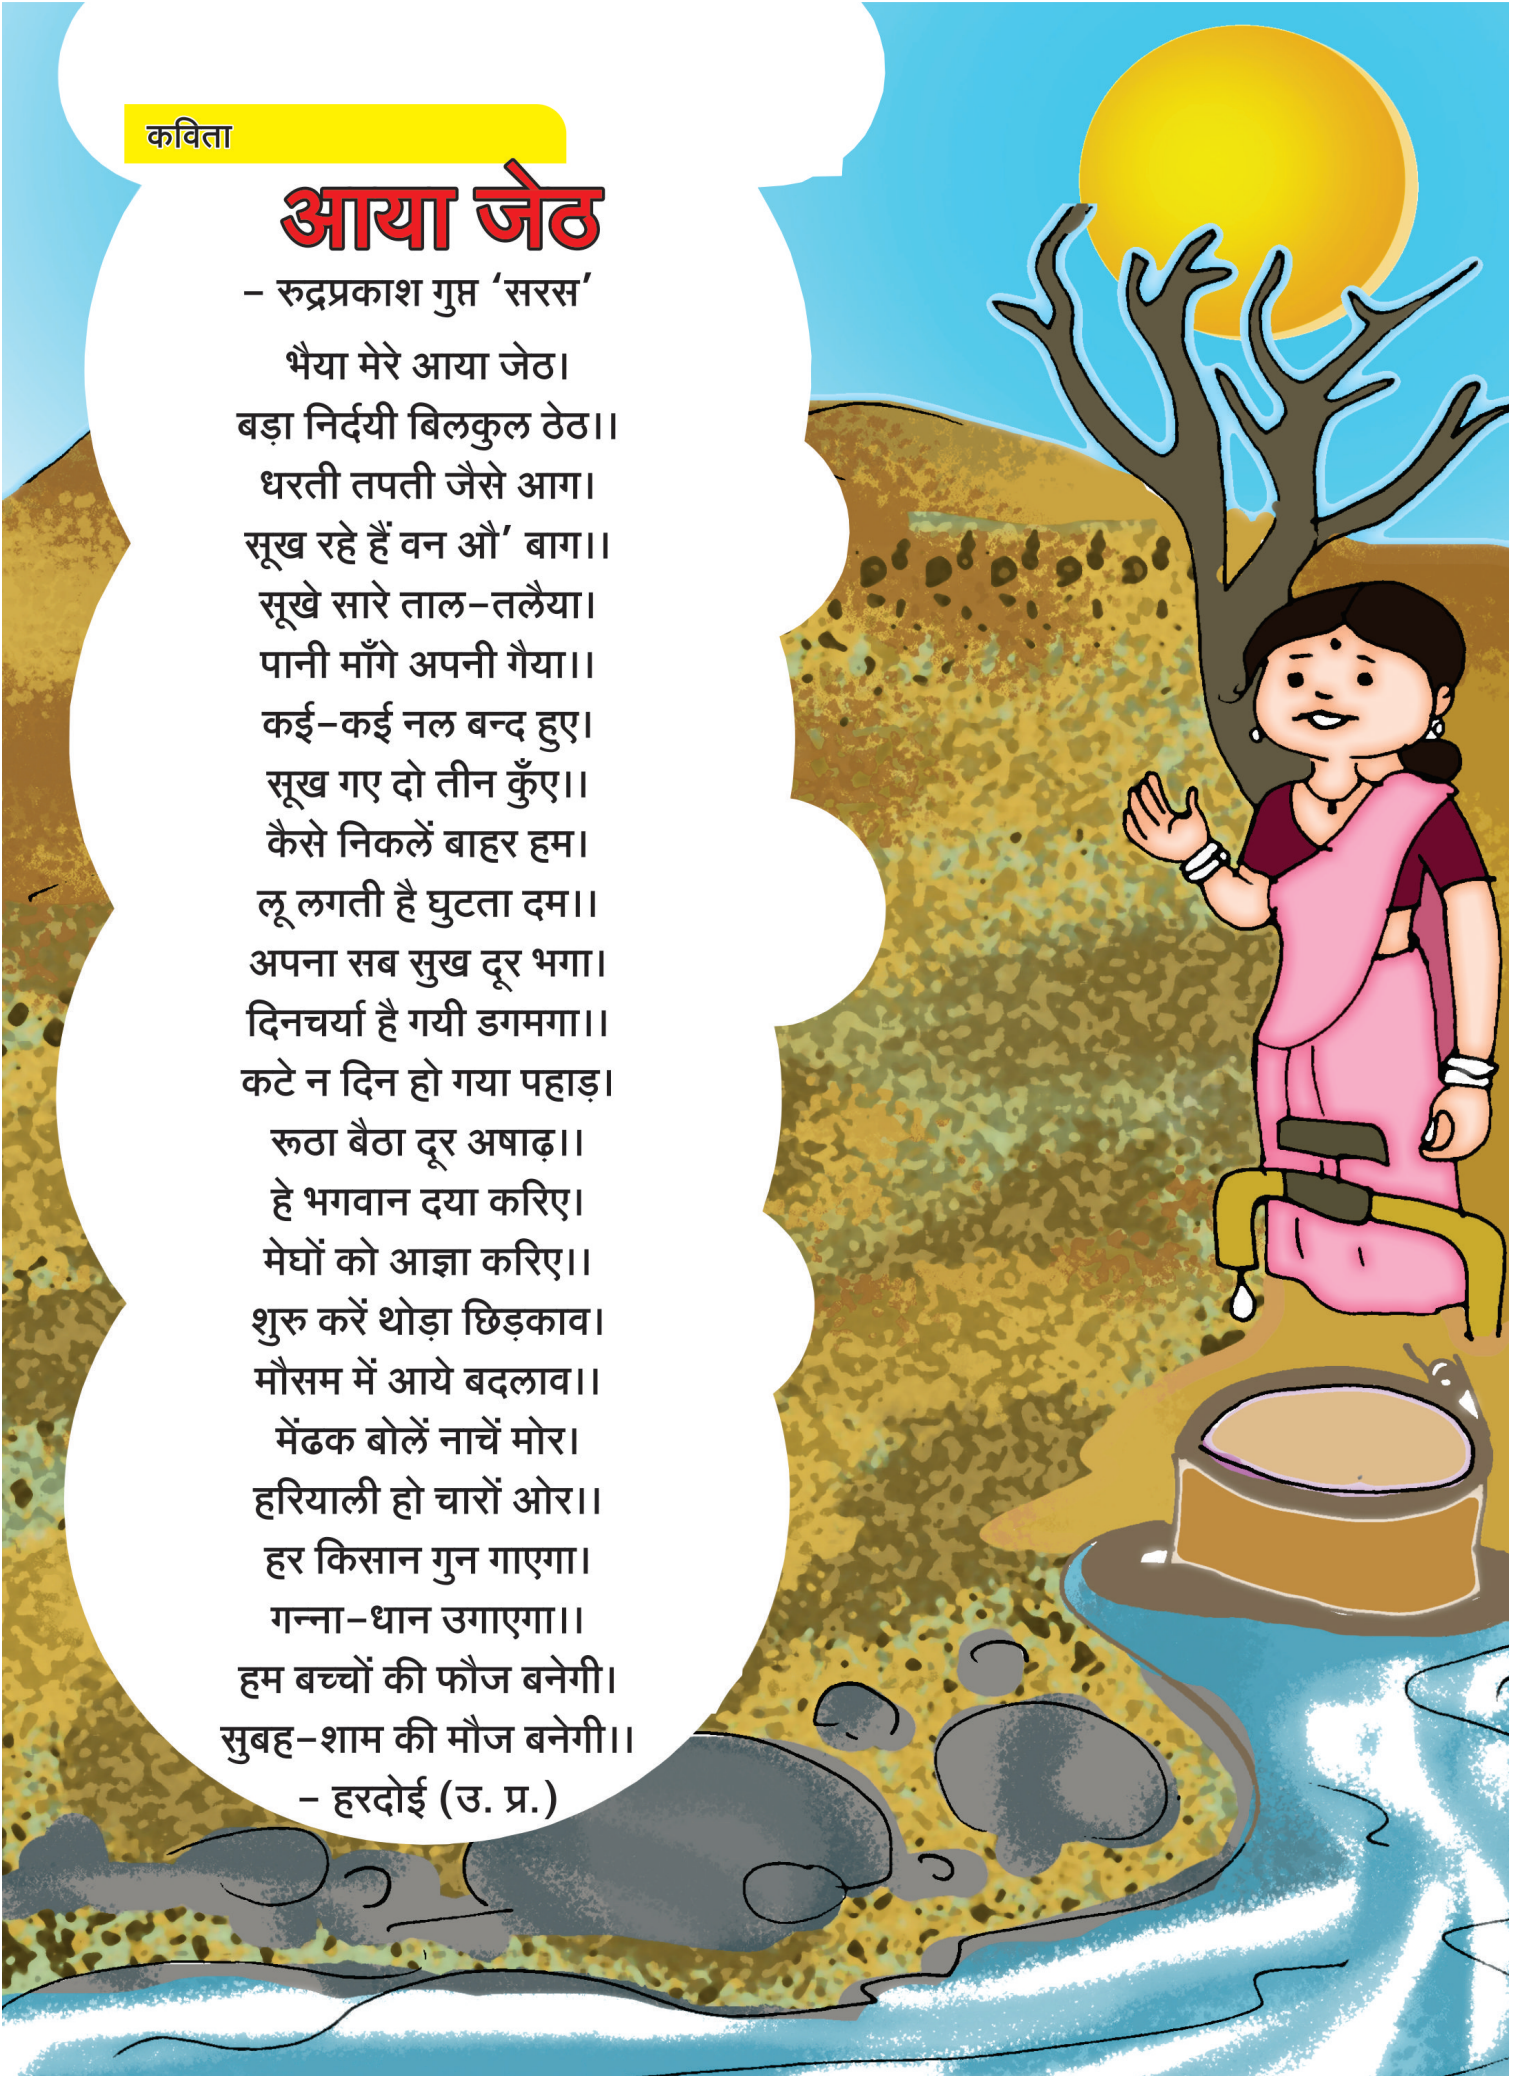 कविता
आया जेठ
– रुद्रप्रकाश गुप्त ‘सरस’
भैया मेरे आया जेठ।
बड़ा निर्दयी बिलकुल ठेठ।।
धरती तपती जैसे आग।
सूख रहे हैं वन औ’ बाग।।
सूखे सारे ताल–तलैया।
पानी माँगे अपनी गैया।।
कई–कई नल बन्द हुए।
सूख गए दो तीन कुँए।।
कैसे निकलें बाहर हम।
लू लगती है घुटता दम।।
अपना सब सुख दूर भगा।
दिनचर्या है गयी डगमगा।।
कटे न दिन हो गया पहाड़।
रूठा बैठा दूर अषाढ़।।
हे भगवान दया करिए।
मेघों को आज्ञा करिए।।
शुरु करें थोड़ा छिड़काव।
मौसम में आये बदलाव।।
मेंढक बोलें नाचें मोर।
हरियाली हो चारों ओर।।
हर किसान गुन गाएगा।
गन्ना–धान उगाएगा।।
हम बच्चों की फौज बनेगी।
सुबह–शाम की मौज बनेगी।।
– हरदोई (उ. प्र.)